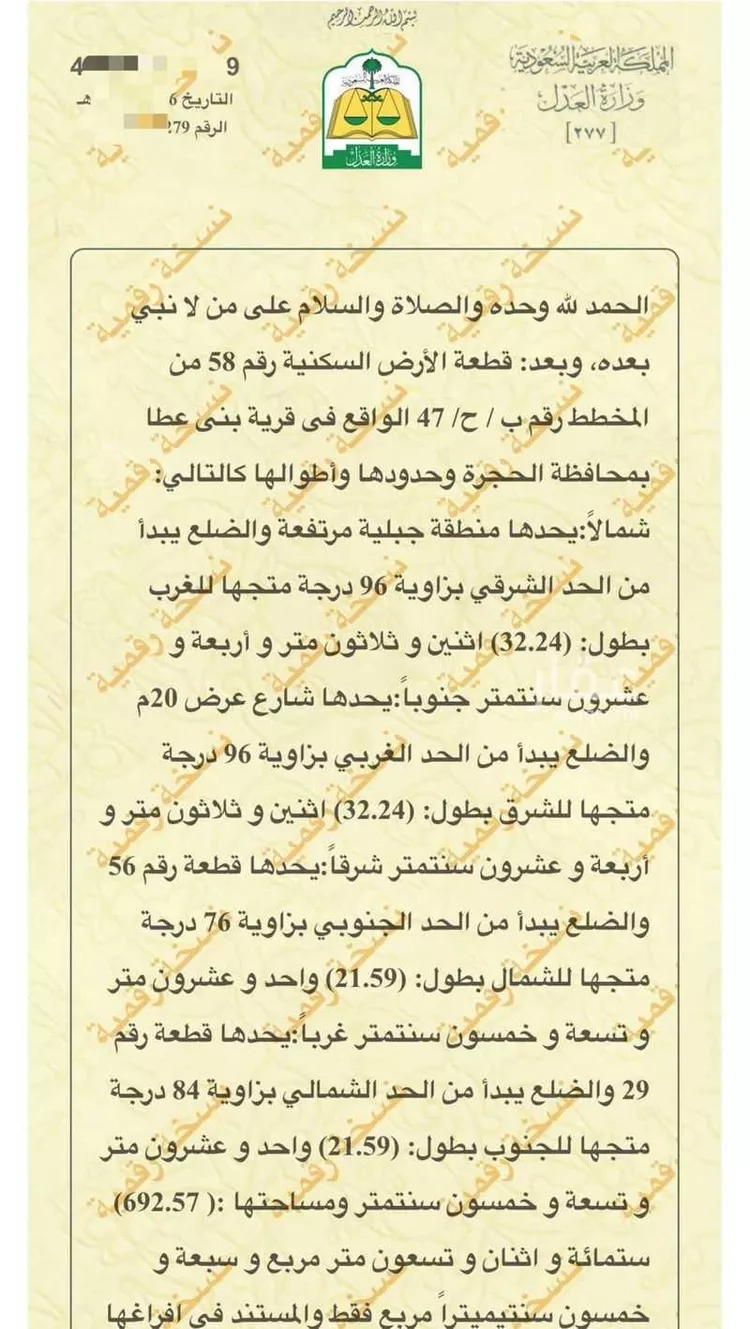 بسم الله الرحمن الرحيم
المملكة العربية السعودية
وزارة العدل
[٢٧٧]
وزارة العدل
4 9
التاريخ 6 هـ
الرقم 279
الحمد لله وحده والصلاة والسلام على من لا نبي
بعده، وبعد: قطعة الأرض السكنية رقم 58 من
المخطط رقم ب / ح/ 47 الواقع فى قرية بنى عطا
بمحافظة الحجرة وحدودها وأطوالها كالتالي:
شمالاً:يحدها منطقة جبلية مرتفعة والضلع يبدأ
من الحد الشرقي بزاوية 96 درجة متجها للغرب
بطول: (32.24) اثنين و ثلاثون متر و أربعة و
عشرون سنتمتر جنوباً:يحدها شارع عرض 20م
والضلع يبدأ من الحد الغربي بزاوية 96 درجة
متجها للشرق بطول: (32.24) اثنين و ثلاثون متر و
أربعة و عشرون سنتمتر شرقاً:يحدها قطعة رقم 56
والضلع يبدأ من الحد الجنوبي بزاوية 76 درجة
متجها للشمال بطول: (21.59) واحد و عشرون متر
و تسعة و خمسون سنتمتر غرباً:يحدها قطعة رقم
29 والضلع يبدأ من الحد الشمالي بزاوية 84 درجة
متجها للجنوب بطول: (21.59) واحد و عشرون متر
و تسعة و خمسون سنتمتر ومساحتها :( 692.57)
ستمائة و اثنان و تسعون متر مربع و سبعة و
خمسون سنتيميتراً مربع فقط والمستند في افراغها
نسخة رقمية